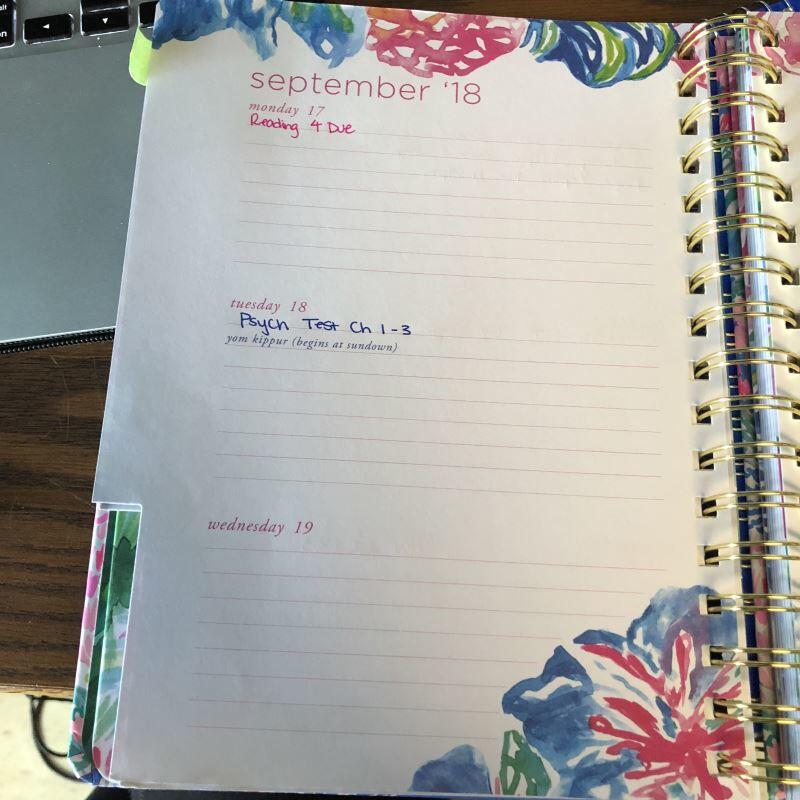 september '18
monday 17
Reading 4 Due
tuesday 18
Psych Test Ch 1-3
yom kippur (begins at sundown)
wednesday 19